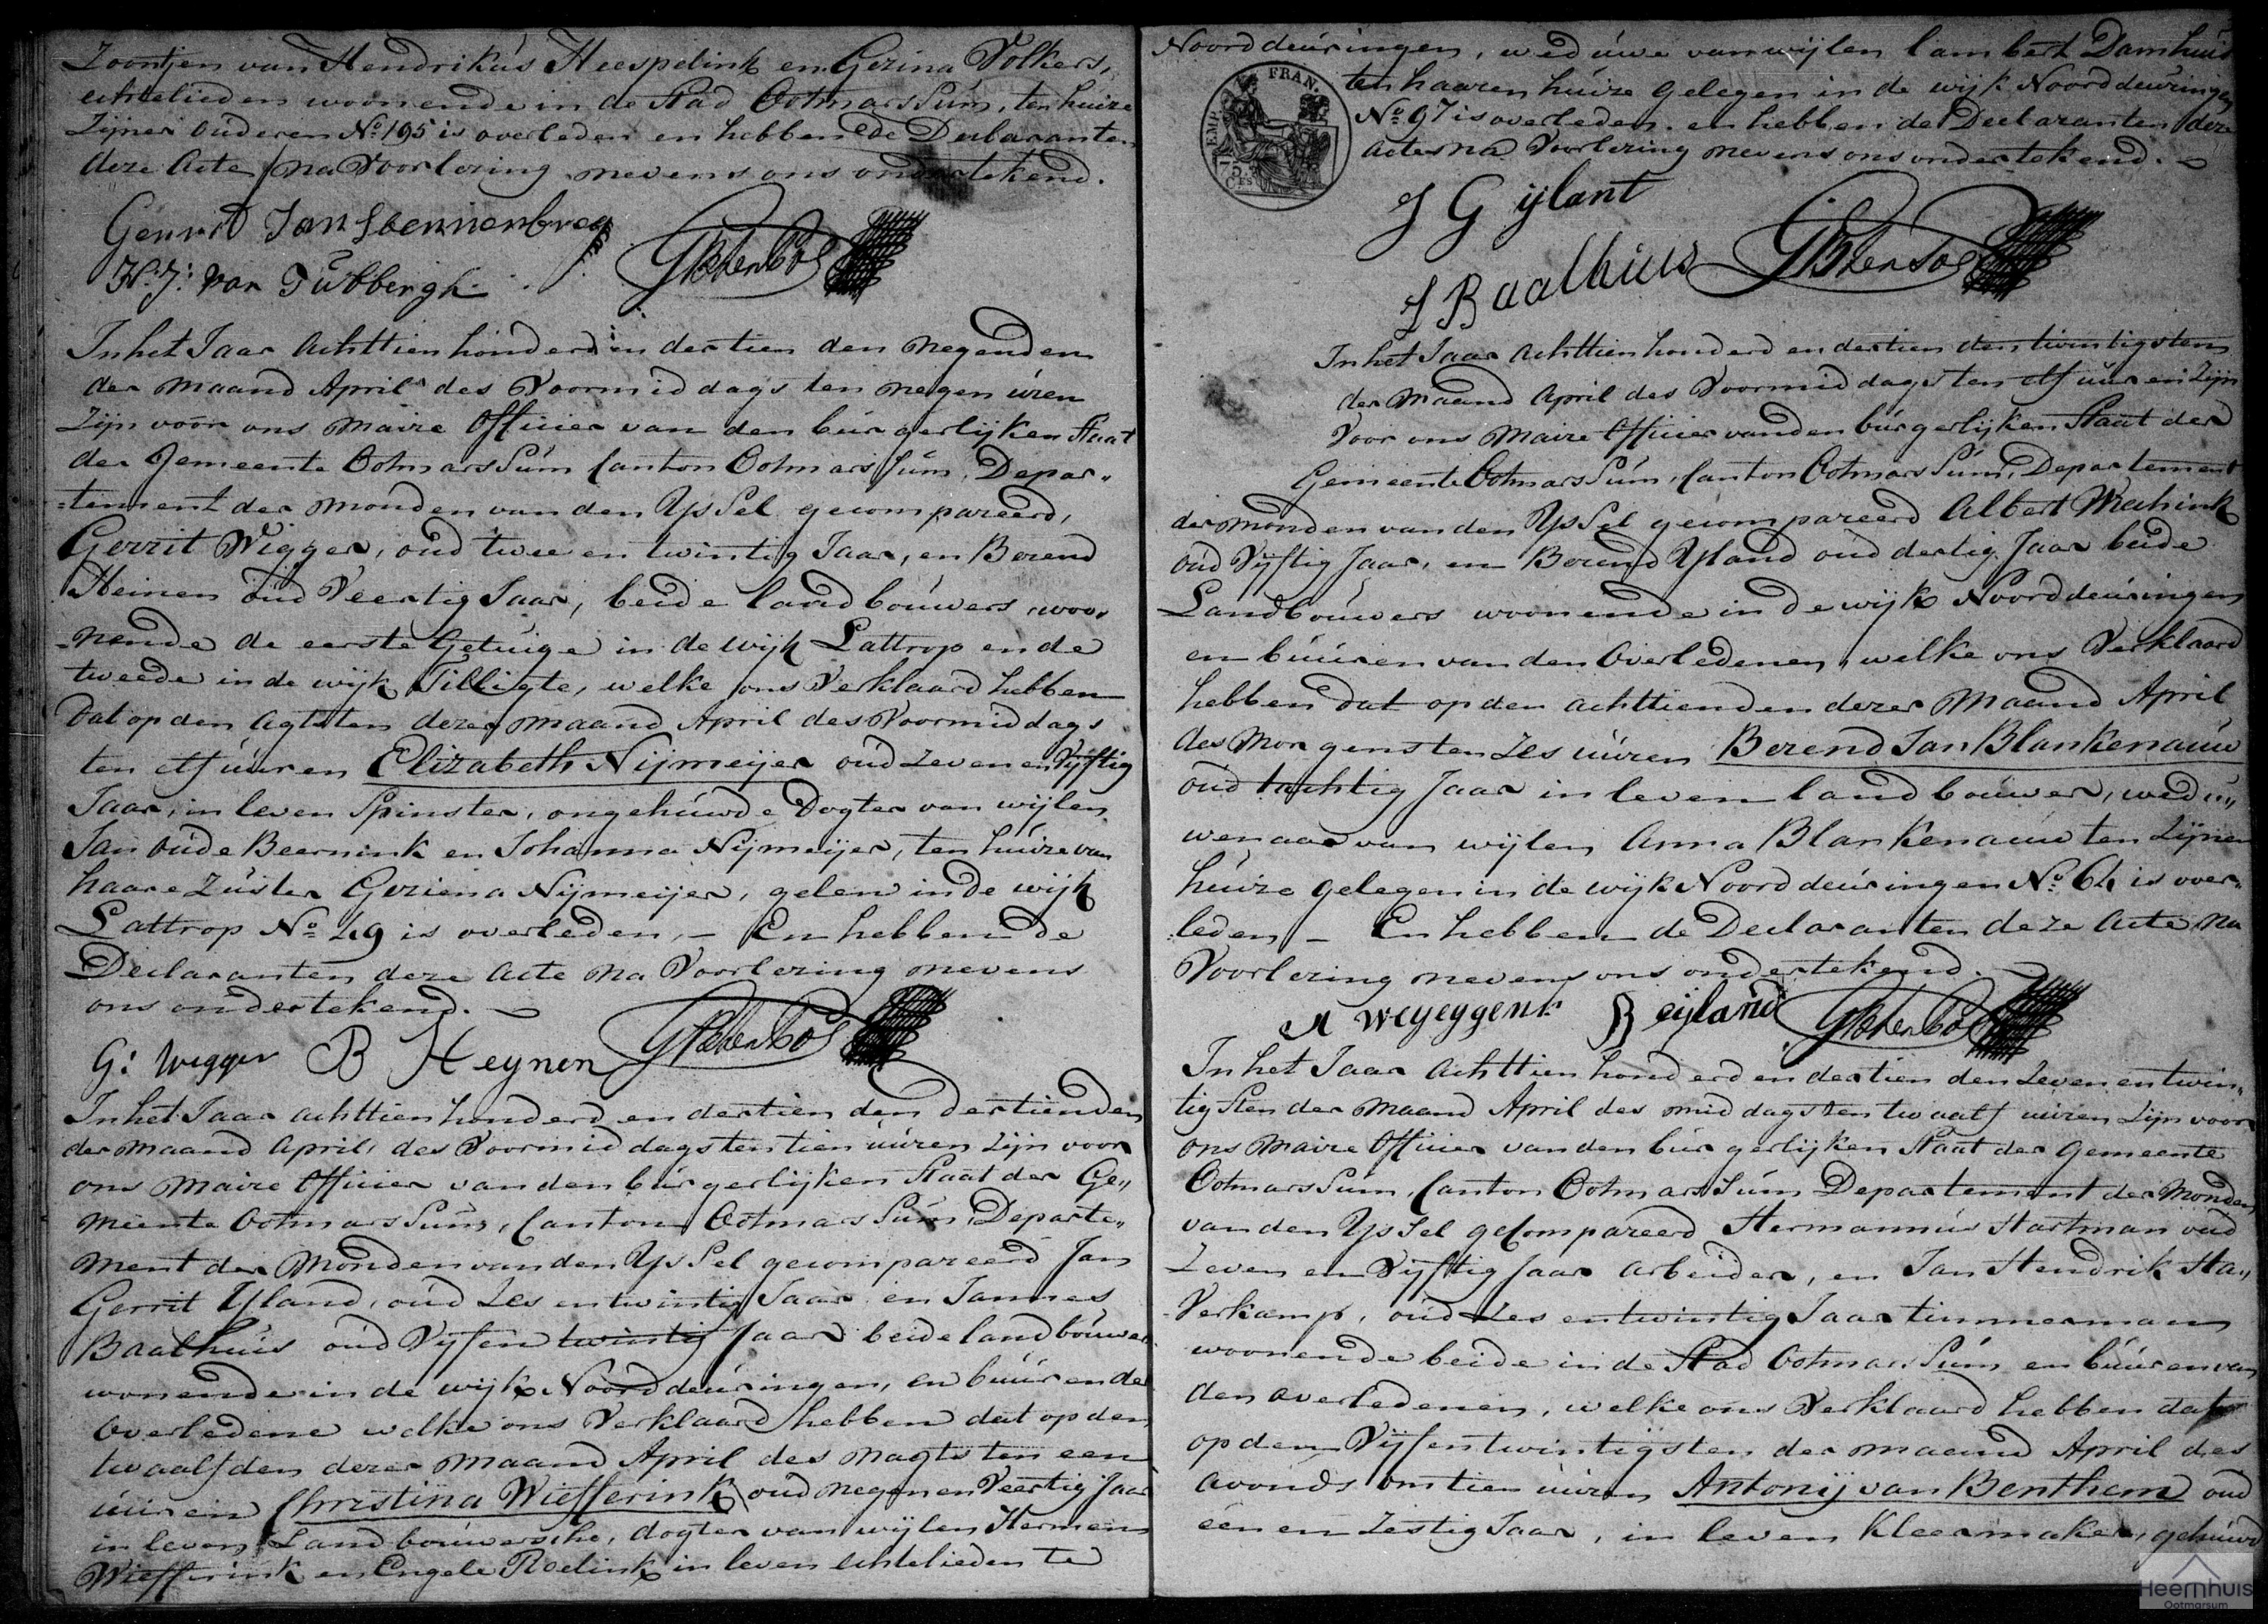 Zoontjen van Hendrikús Heespelink en Gezina Volkers,
echtelieden woonende in de Stad Ootmarssúm, ten huize
Zijner Ouderen No. 195 is overleden en hebbende de Declaranten
deze Acte na Voorlezing nevens ons ondertekend.
Gerrit Jan
H: J: van Tübbergh
In het Jaar Achttien honderd en dertien den Negenden
der Maand April des Voormiddags ten negen úren
Zijn voor ons Maire Officier van den búrgerlijken Staat
der Gemeente Ootmarssúm Canton Ootmarssúm, Depar„
tement der Monden van den Yssel gecompareerd,
Gerrit Wigger, oúd twee en twintig Jaar, en Berend
Heinen oúd Veertig Jaar, beide landboúwers, woo„
nende de eerste Getúige in de wijk Lattrop en de
tweede in de wijk Tilligte, welke ons Verklaard hebben
Dat op den Agtsten dezer Maand April des Voormiddags
ten elf úúren Elizabeth Nijmeijer oúd Zeven en Vijftig
Jaar, in leven Spinster, ongehúwde Dogter van wijlen
Jan oúde Beernink en Johanna Nijmeijer, ten húize van
haare Zúster Geziena Nijmeijer, gelem in de wijk
Lattrop No. 49 is overleden, – En hebben de
Declaranten deze Acte Na Voorlezing nevens
ons ondertekend. –
G: Wegger B Heynen
In het Jaar achttien honderd en dertien den dertienden
der Maand April, des Voormiddags ten tien úúren Zijn voor
ons Maire Officier van den búrgerlijken Staat der Ge„
meente Ootmarssúm, Canton Ootmarssúm Departe„
ment der Monden van den Yssel gecompareerd Jan
Gerrit Yland, oúd Zes en twintig Jaar en Jannes
Baalhúis oúd Vyf en twintig Jaar beide landboúwer
wonende in de wijk Noorddeúringen, en búúren der
Overledene welke ons Verklaard hebben dat op den
twaalfden dezer Maand April des Nagts ten een
úúren Christina Wiefferink oúd negen en Veertig Jaar
in leven Landboúwersche, dogter van wijlen Hermen
Wiefferink en Engele Roelink in leven echtelieden te
Noorddeúringen, wedúwe van wijlen Lambert Damhúis
ten haaren húize gelegen in de wijk Noorddeúringen
No. 97 is overleden. en hebben de Declaranten deze
Acte na Voorlezing nevens ons ondertekend. –
EMP. FRAN.
75. Cts
J G ijlant
J Baalhuis
In het Jaar Achttien honderd en dertien den twintigsten
der Maand April des Voormiddags ten elf úúren Zijn
Voor ons Maire Officier van den búrgerlijken Staat der
Gemeente Ootmarssúm, Canton Ootmarssúm, Departement
der Monden van den Yssel gecompareerd Albert
oúd Vyftig Jaar, en Berend Yland oúd dertig Jaar beide
Landboúwers woonende in de wijk Noorddeúringen
en búúren van den Overledenen, welke ons Verklaard
hebben dat op den achttienden dezer Maand April
des Morgens ten Zes úúren Berend Jan Blankenaúw
oúd tachtig Jaar in leven landboúwer, wedú„
wenaar van wijlen Anna Blankenaúw ten Zijnen
húize gelegen in de wijk Noorddeúringen No. 64 is over„
leden – En hebben de Declaranten deze Acte Na
Voorlezing nevens ons ondertekend. –
A weyeggenk B eijland
In het Jaar Achttien honderd en dertien den Zeven en twin„
tigsten der Maand April des middags ten twaalf úúren Zijn voor
ons Maire Officier van den búrgerlijken Staat der Gemeente
Ootmarssúm, Canton Ootmarssúm Departement der Monden
van den Yssel gecompareerd Hermannús Hartman oúd
Zeven en Vijftig Jaar Arbeider, en Jan Hendrik Ha„
verkamp, oúd Zes en twintig Jaar timmerman
woonende beide in de Stad Ootmarssúm en búúren van
den overledenen, welke ons Verklaard hebben dat
op den Vijfentwintigsten der maand April des
avonds om tien úúren Antonij van Benthem oúd
één en Zestig Jaar, in leven Kleermaker, gehúwd
Heernhuis
Ootmarsum